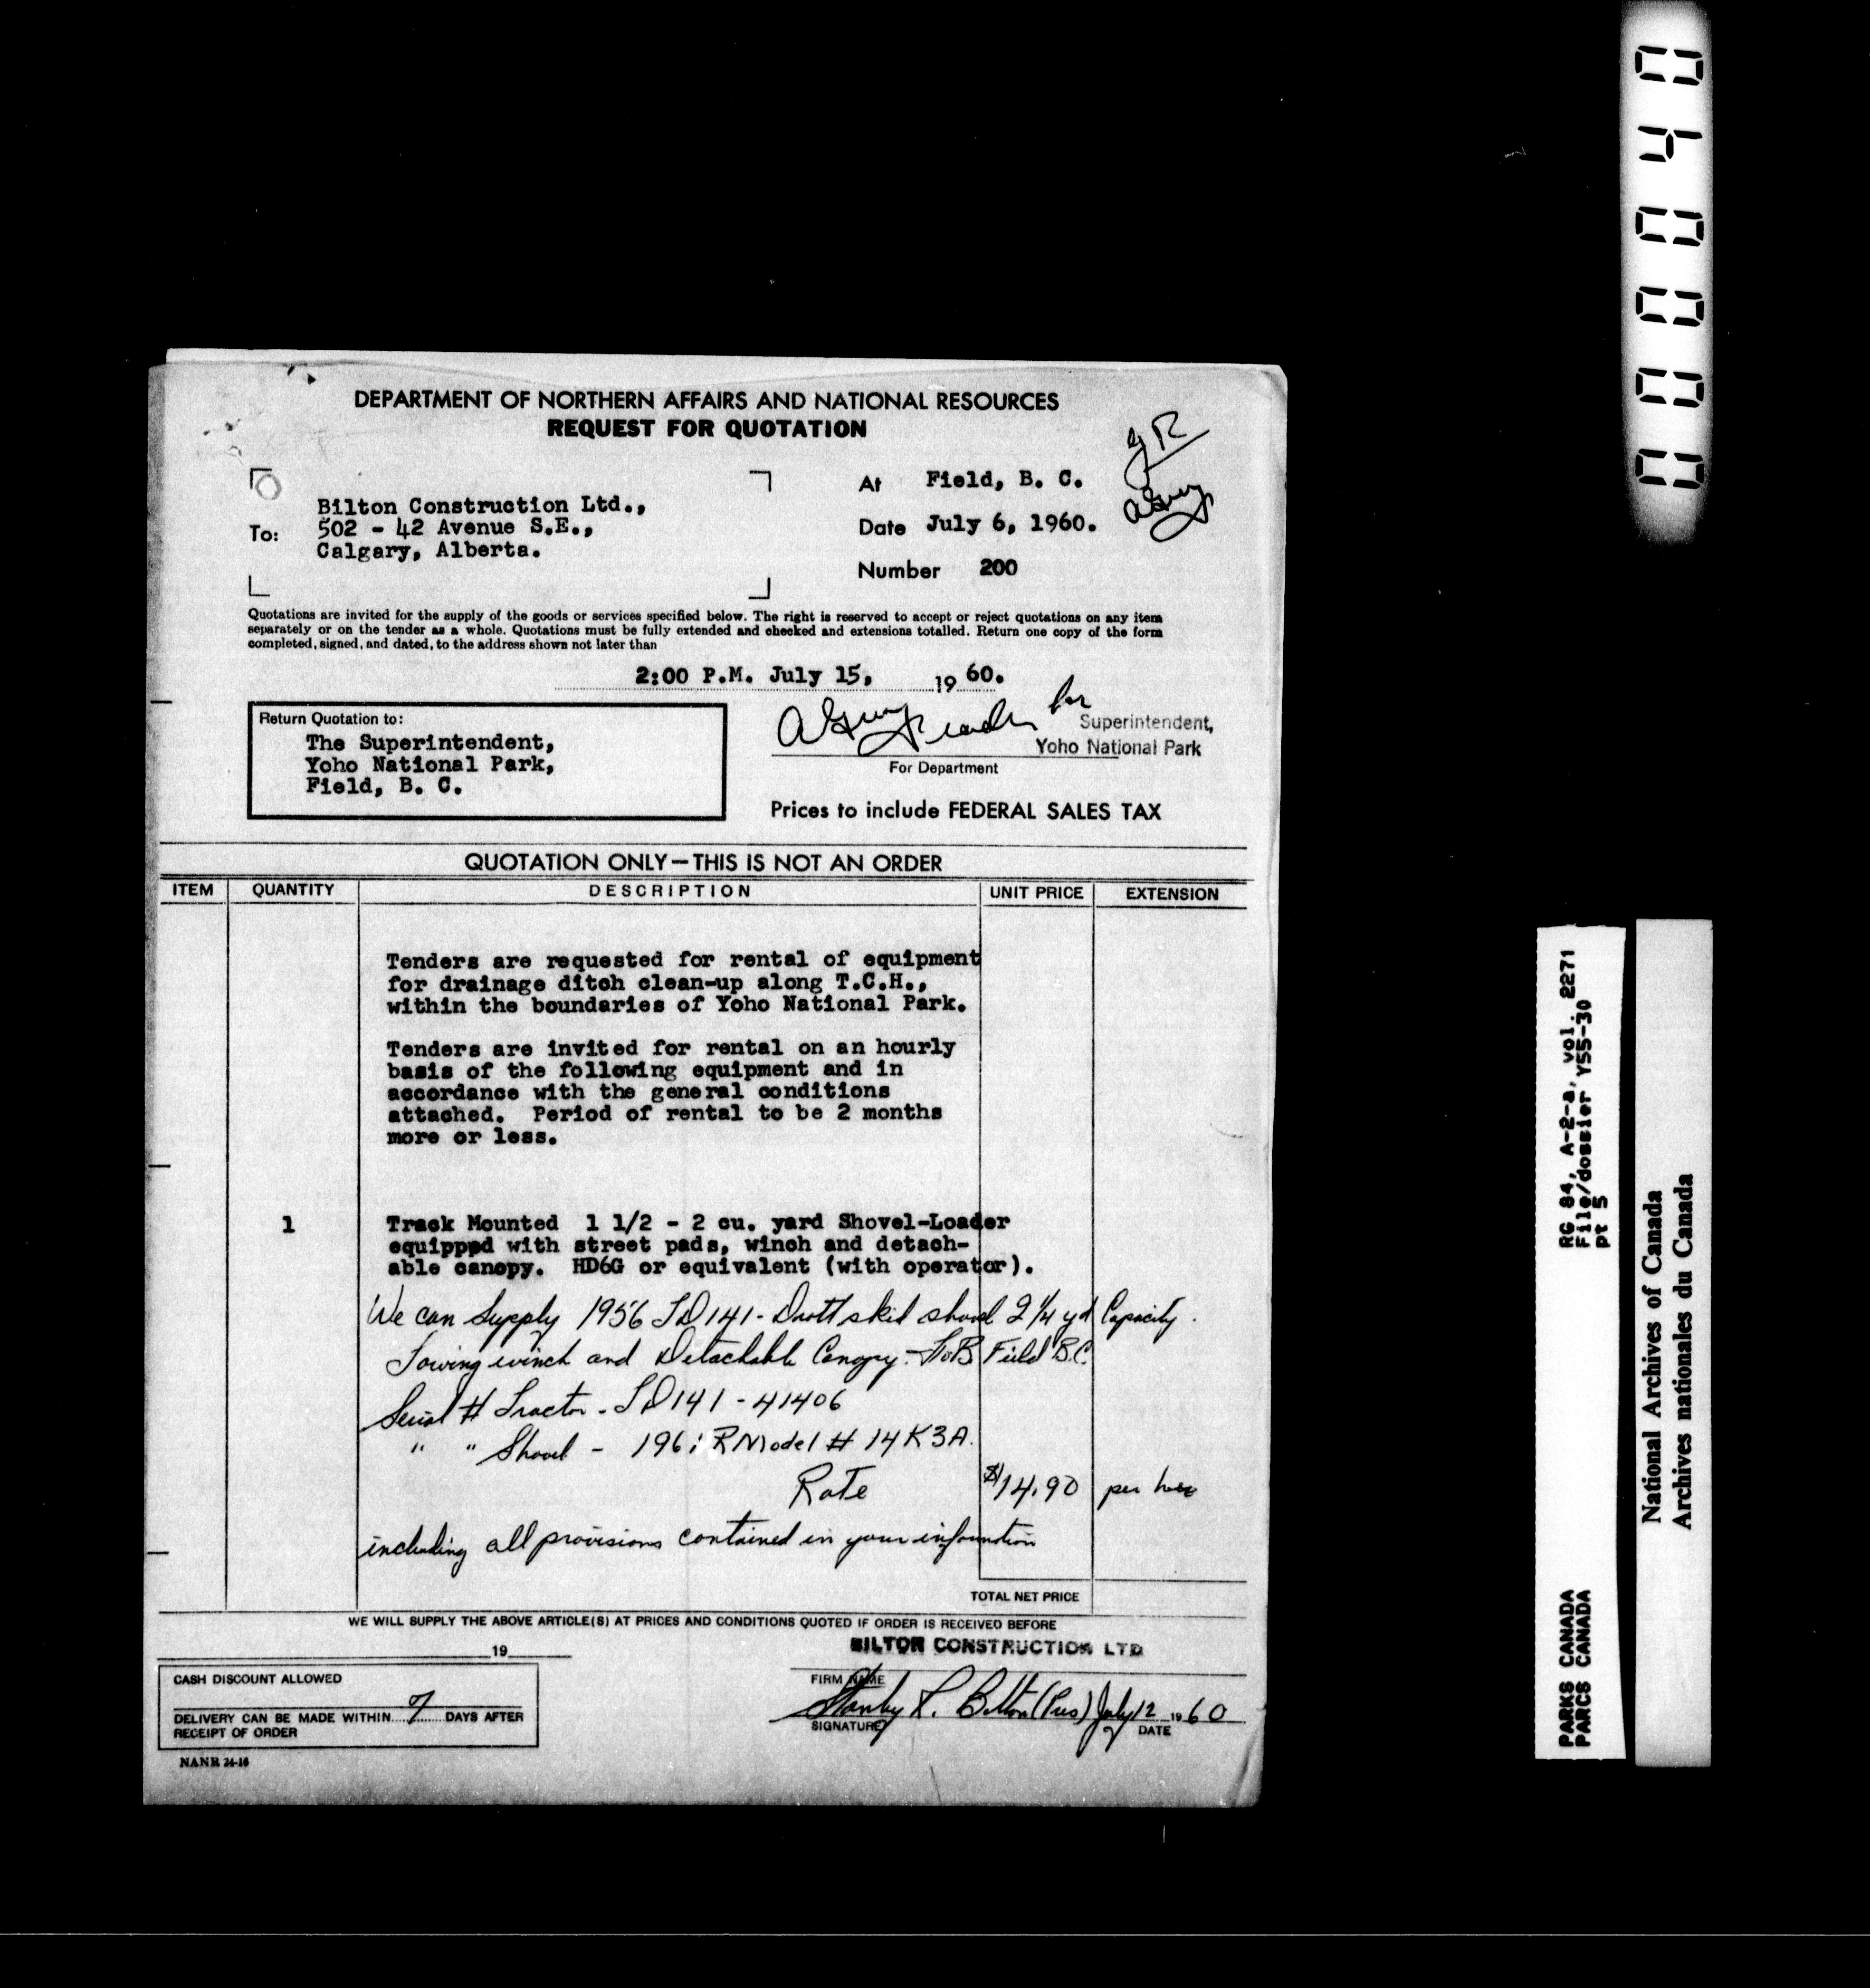 DEPARTMENT OF NORTHERN AFFAIRS AND NATIONAL RESOURCES
REQUEST FOR QUOTATION
To:
Bilton Construction Ltd.,
502 - 42 Avenue S.E.,
Calgary, Alberta.
At Field, B. C.
Date July 6, 1960.
Number 200
Quotations are invited for the supply of the goods or services specified below. The right is reserved to accept or reject quotations on any item
separately or on the tender as a whole. Quotations must be fully extended and checked and extensions totalled. Return one copy of the form
completed, signed, and dated, to the address shown not later than
2:00 P.M. July 15, 19 60.
Return Quotation to:
The Superintendent,
Yoho National Park,
Field, B. C.
for
Superintendent,
Yoho National Park
For Department
Prices to include FEDERAL SALES TAX
QUOTATION ONLY—THIS IS NOT AN ORDER
ITEM QUANTITY DESCRIPTION UNIT PRICE EXTENSION
Tenders are requested for rental of equipment
for drainage ditch clean-up along T.C.H.,
within the boundaries of Yoho National Park.
Tenders are invited for rental on an hourly
basis of the following equipment and in
accordance with the general conditions
attached. Period of rental to be 2 months
more or less.
1 Track Mounted 1 1/2 - 2 cu. yard Shovel-Loader
equippped with street pads, winch and detach-
able canopy. HD6G or equivalent (with operator).
We can Supply 1956 TD141 - Drott skid shovel 2 1/4 yd Capacity.
Towing winch and Detachable Canopy - FoB Field B.C.
Serial # Tractor - TD141 - 41406
" " Shovel - 196; R Model # 14K3A.
Rate $14.90 per hour
including all provisions contained in your information
TOTAL NET PRICE
WE WILL SUPPLY THE ABOVE ARTICLE(S) AT PRICES AND CONDITIONS QUOTED IF ORDER IS RECEIVED BEFORE
19
BILTON CONSTRUCTION LTD
FIRM NAME
CASH DISCOUNT ALLOWED
DELIVERY CAN BE MADE WITHIN 7 DAYS AFTER
RECEIPT OF ORDER
Stanley R. Bilton (Pres) July 12 1960
SIGNATURE DATE
NANR 24-16
RG 84, A-2-a, vol. 2271
File/dossier Y55-30
pt 5
PARKS CANADA
PARCS CANADA
National Archives of Canada
Archives nationales du Canada